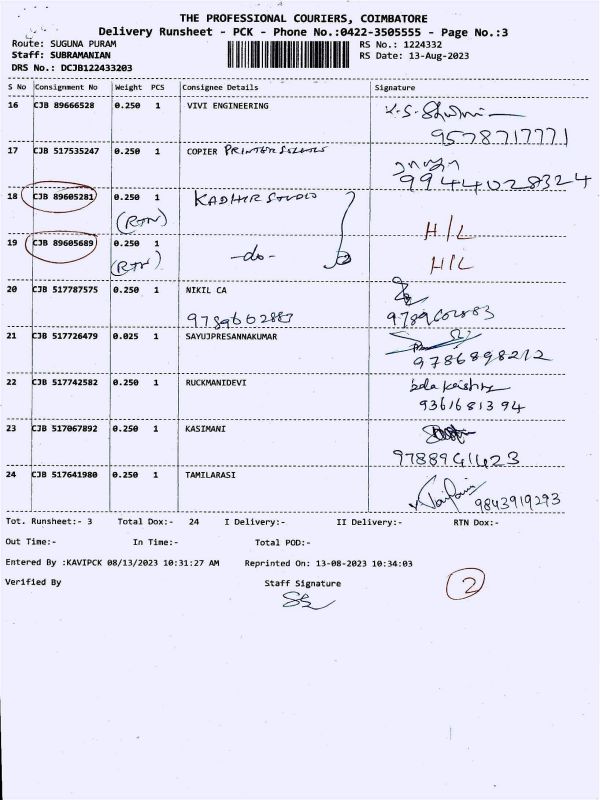 THE PROFESSIONAL COURIERS, COIMBATORE
Delivery Runsheet - PCK - Phone No.:0422-3505555 - Page No.:3
Route: SUGUNA PURAM RS No.: 1224332
Staff: SUBRAMANIAN RS Date: 13-Aug-2023
DRS No.: DCJB122433203
S No Consignment No Weight PCS Consignee Details Signature
16 CJB 89666528 0.250 1 VIVI ENGINEERING
9578717771
17 CJB 517535247 0.250 1 COPIER PRINTER
99444028324
18 CJB 89605281 0.250 1 KADHIR STUDIO
(RTN) H/L
19 CJB 89605689 0.250 1 -do-
(RTN) H/L
20 CJB 517787575 0.250 1 NIKIL CA
9789602883 9789602883
21 CJB 517726479 0.025 1 SAYUJPRESANNAKUMAR
9786898212
22 CJB 517742582 0.250 1 RUCKMANIDEVI
9361681394
23 CJB 517067892 0.250 1 KASIMANI
9788941423
24 CJB 517641980 0.250 1 TAMILARASI
9843919293
Tot. Runsheet:- 3 Total Dox:- 24 I Delivery:- II Delivery:- RTN Dox:-
Out Time:- In Time:- Total POD:-
Entered By :KAVIPCK 08/13/2023 10:31:27 AM Reprinted On: 13-08-2023 10:34:03
Verified By Staff Signature
2